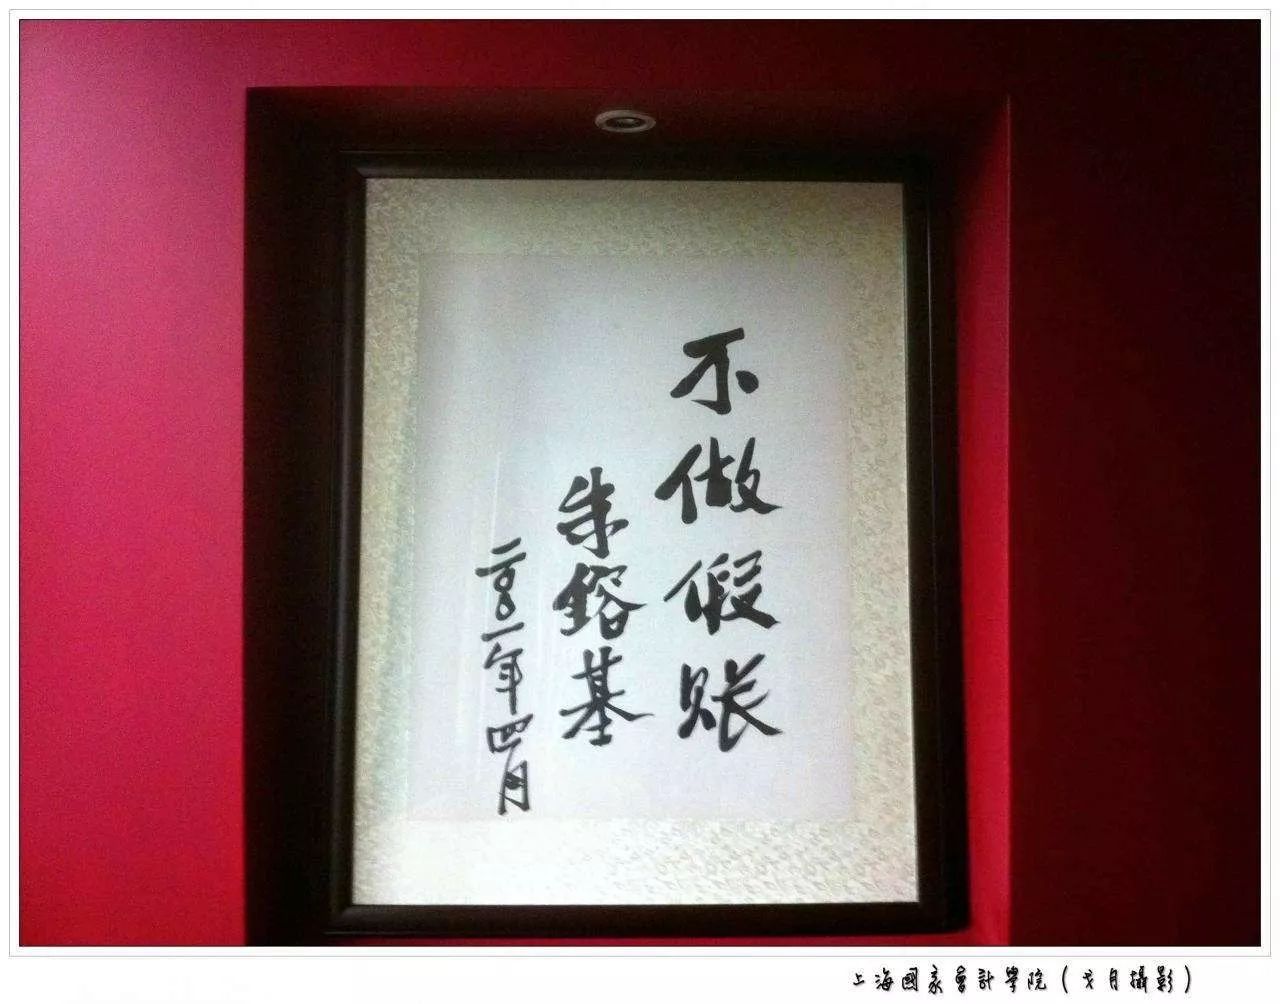 不做假账
朱鎔基
二〇〇一年四月
上海國家會計學院(戈月攝影)